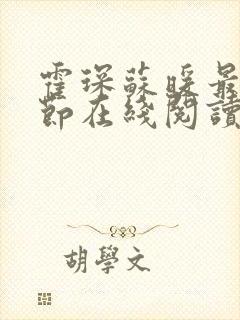 霍琛蘇暖最
節在綫閱讀
胡學文